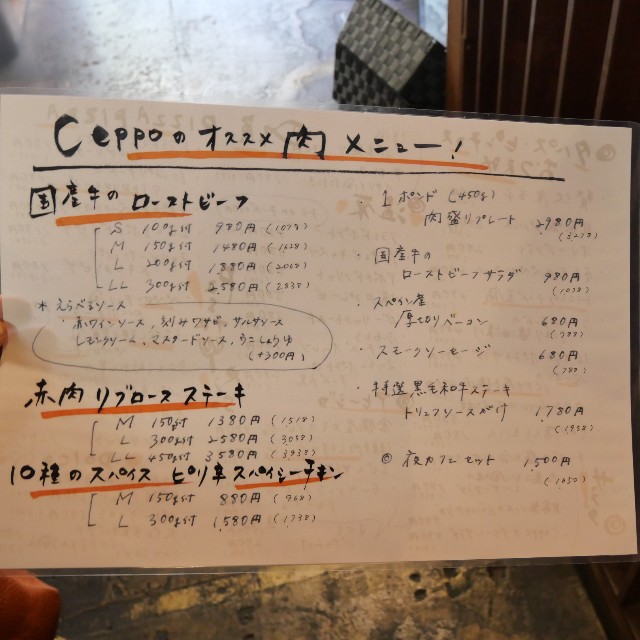 Ceppoのオススメ肉メニュー!
国産牛のローストビーフ
S 100g付 980円 (1078)
M 150g付 1480円 (1628)
L 200g付 1880円 (2068)
LL 300g付 2580円 (2838)
* えらべるソース
・赤ワインソース、刻みワサビ、サルサソース
レモンクリーム、マスタードソース、ウニしょうゆ
(+300円)
赤肉リブロースステーキ
M 150g付 1380円 (1518)
L 300g付 2580円 (3058)
LL 450g付 3580円 (3938)
10種のスパイス ピリ辛スパイシーチキン
M 150g付 880円 (968)
L 300g付 1,580円 (1738)
・1ポンド (450g)
肉盛りプレート 2980円
(3278)
・国産牛の
ローストビーフサラダ 980円
(1078)
・スペイン産
厚切りベーコン 680円
(788)
・スモークソーセージ 680円
(788)
・特選黒毛和牛ステーキ
トリュフソースがけ 1,780円
(1958)
◎ 夜カフェセット 1,500円
(1650)